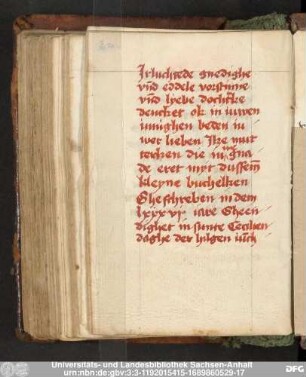 Irluchtede gnedighe
vnd eddele vorstynne
vnd lyebe dochtere
dencket ok in iuwen
innighen beden iu
wer lieben
tochen die nu gna
de eret myt dussem
kleyne buchelken
Gheschreben in dem
lxxxvi iare Gheen
dighet in sunte Cecilien
daghe der hilgen iuncf
Universitäts- und Landesbibliothek Sachsen-Anhalt
urn:nbn:de:gbv:3:3-1192015415-1689860529-17
DFG